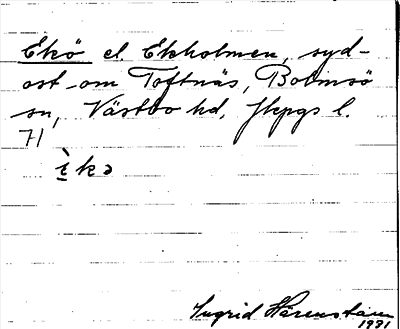 Ekö el. Ekholmen, syd-
ost om Toftnäs, Bolmsö
sn, Västbo hd, Jkpgs l.
71
ìkə
Ingrid Härenstam
1931